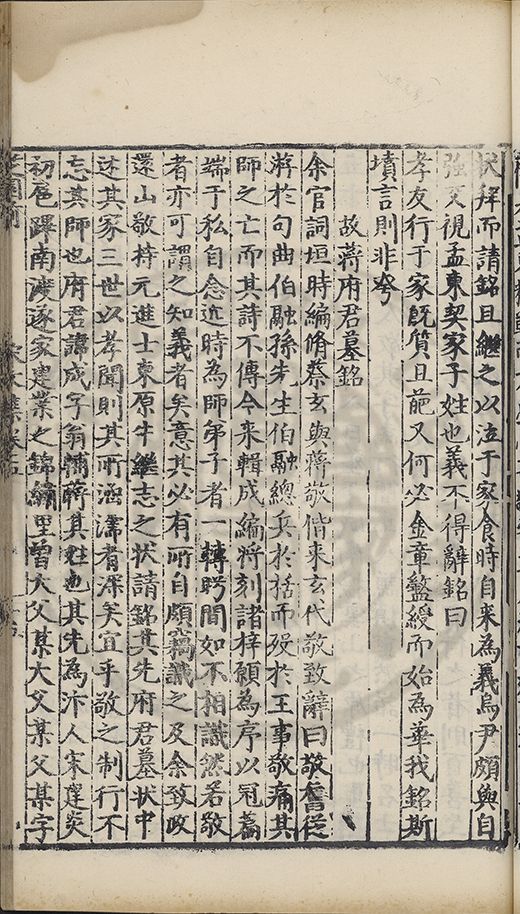 狀拜而請銘且繼之以泣于家食時自来為義烏尹頗與自
強交視孟東契家子姓也義不得辭銘曰
孝友行于家既質且葩又何必金章盭綬而始為華我銘斯
墳言則非夸
故蔣府君墓銘
余官詞垣時編脩蔡玄與蔣敬偕来玄代敬致辭曰敬嘗從
游於句曲伯融孫先生伯融總兵於括而歿於王事敬痛其
師之亡而其詩不傳今来輯成編将刻諸梓願為序以冠篇
端于私自念近時為師弟子者一轉眄間如不相識然若敬
者亦可謂之知義者矣意其必有所自頗竊識之及余致政
還山敬持元進士東原牛繼志之状請銘其先府君墓状中
述其家三世以孝聞則其所涵濡者深矣宜乎敬之制行不
忘其師也府君諱成字翁輔蔣其姓也其先為汴人宋建炎
初扈蹕南渡遂家建業之錦繡里曾大父某大父某父某字